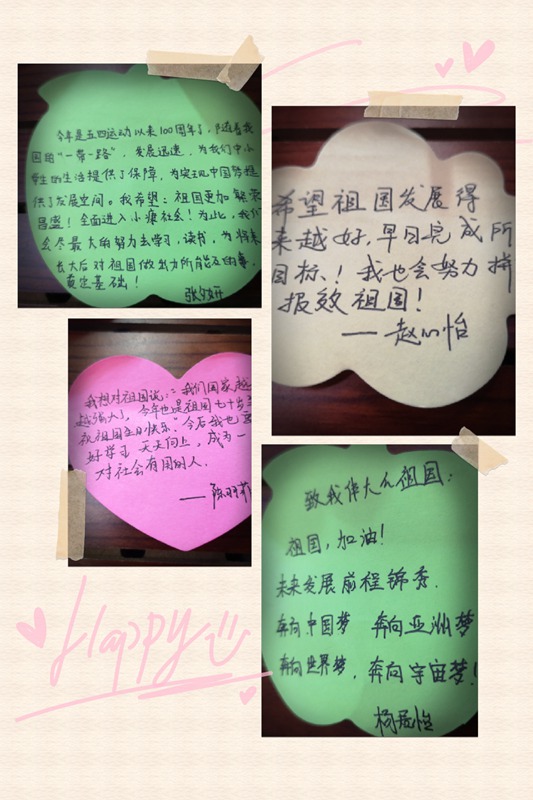 今年是五四运动以来100周年了,随着我
国的“一带一路”,发展迅速,为我们中小
学生的生活提供了保障,为实现中国梦提
供了发展空间。我希望:祖国更加繁荣
昌盛!全面进入小康社会!为此,我们
会尽最大的努力去学习,读书,为将来
长大后对祖国做出力所能及的事,
奠定基础!
张妍
希望祖国发展得
来越好,早日完成所
目标、!我也会努力拼
报效祖国!
——赵心怡
我想对祖国说:我们国家越
越强大了,今年也是祖国七十岁
祝祖国生日快乐、今后我也要
好学习 天天向上,成为一
对社会有用的人.
——陈羽
致我伟大的祖国:
祖国,加油!
未来发展前程锦秀.
奔向中国梦 奔向亚洲梦
奔向世界梦,奔向宇宙梦!
杨怡
Happy